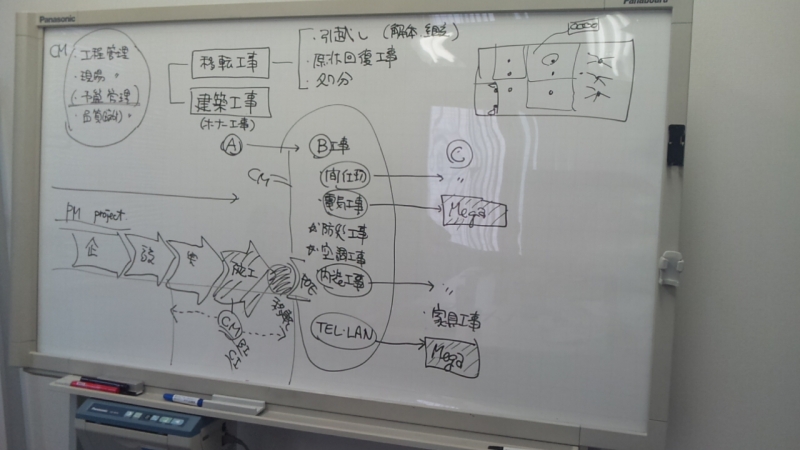 Panasonic
Panaboard
CM:
・工程管理
・現場 〃
(・予算管理)
移転工事
・引越し (解体, 組立)
・原状回復工事
・処分
建築工事
(オーナー工事)
A
B工事
C
CM
間仕切
〃
電気工事
Mega
☆防災工事
☆空調工事
内装工事
〃
・家具工事
TEL・LAN
Mega
PM project
企
設
実
施工
移転
CM
B工
C工
Panasonic